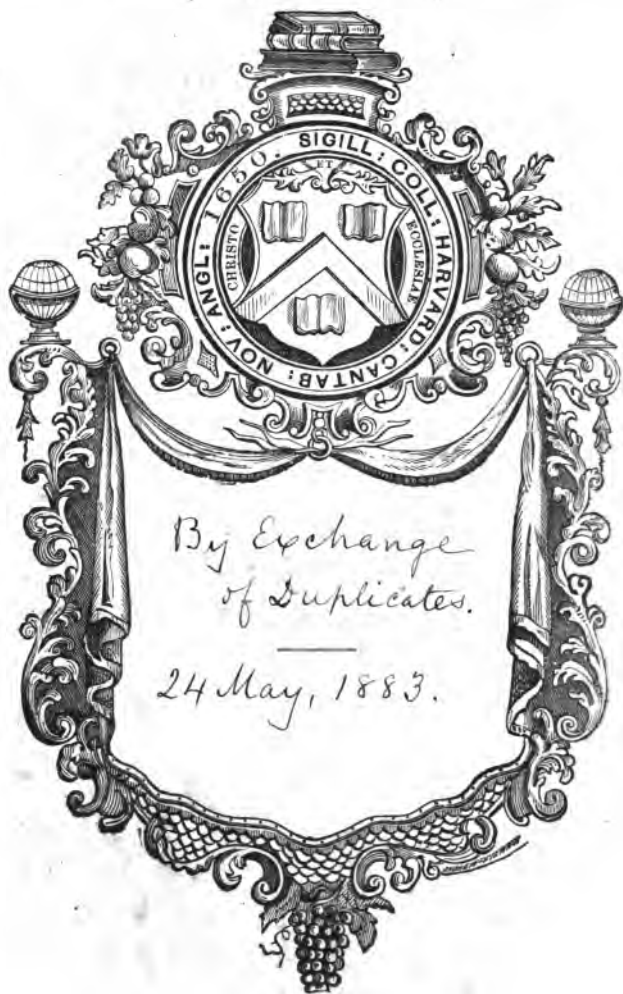 SIGILL: COLL: HARVARD: CANTAB: NOV: ANGL: 1650.
CHRISTO
ET
ECCLESIAE
By Exchange
of Duplicates.
24 May, 1883.